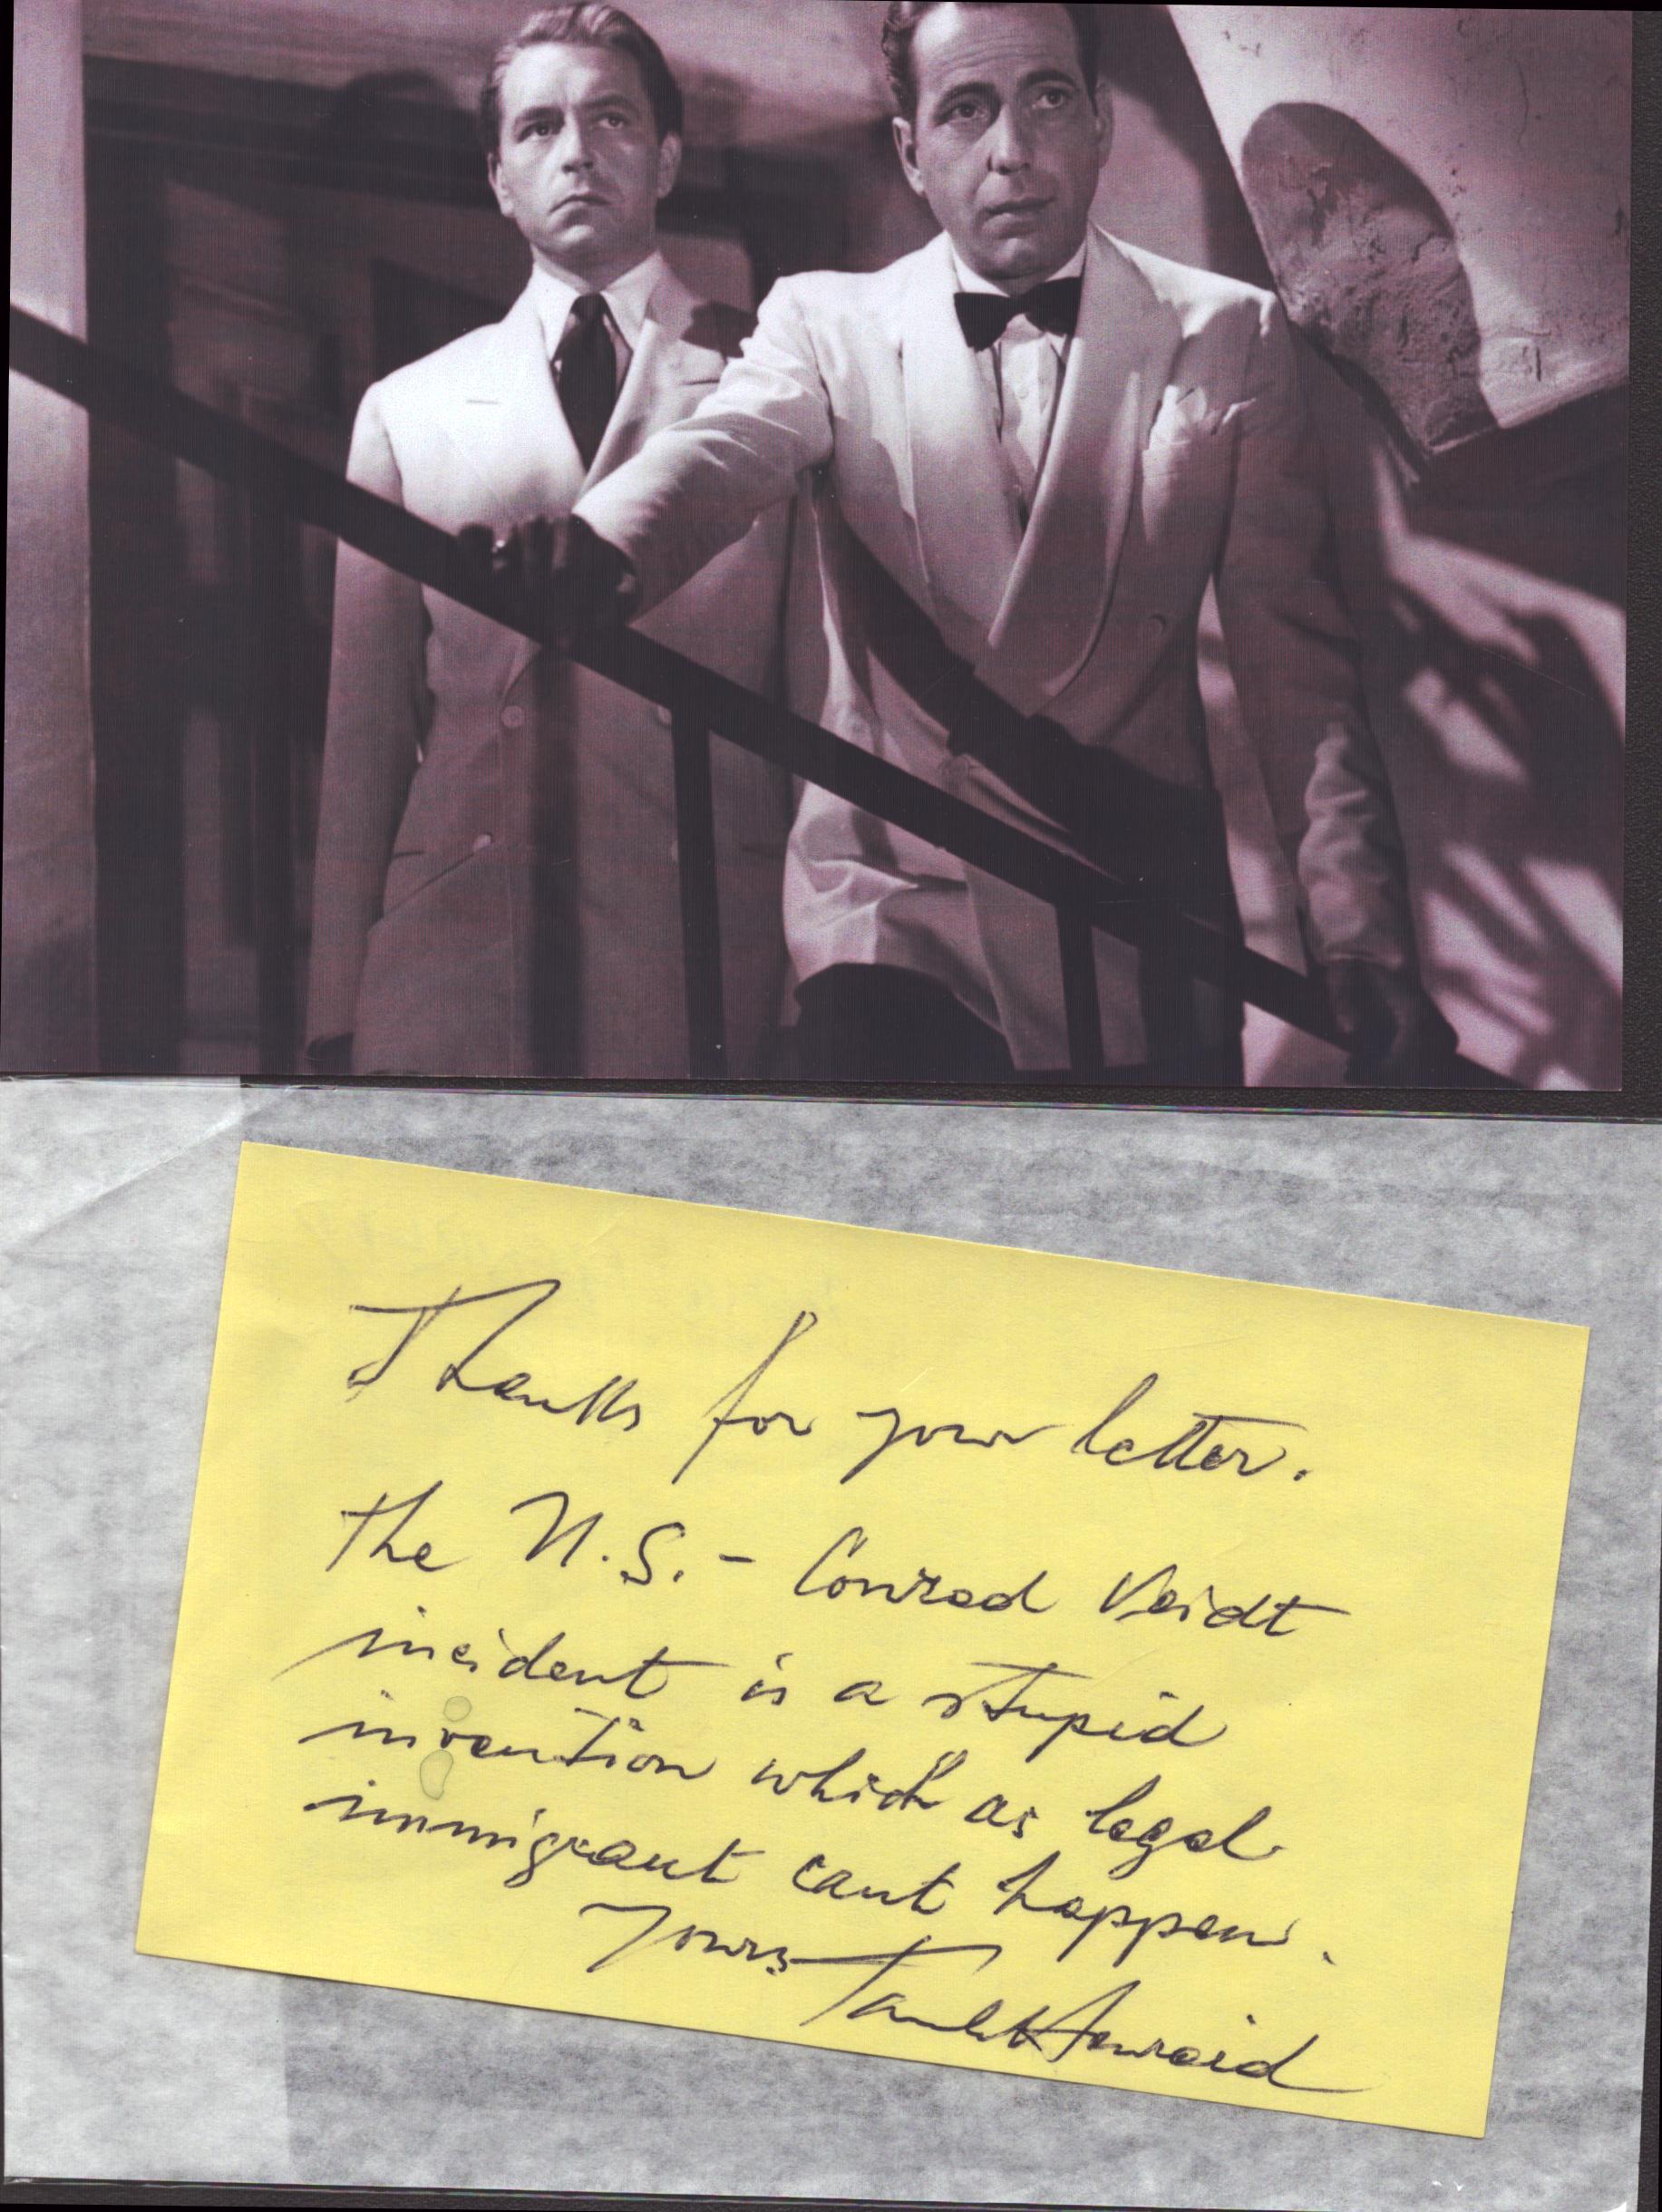 Thanks for your letter.
the N.S. - Conrad Veidt
incident is a stupid
invention which as legal
immigrant cant happen.
Yours Paul Henreid